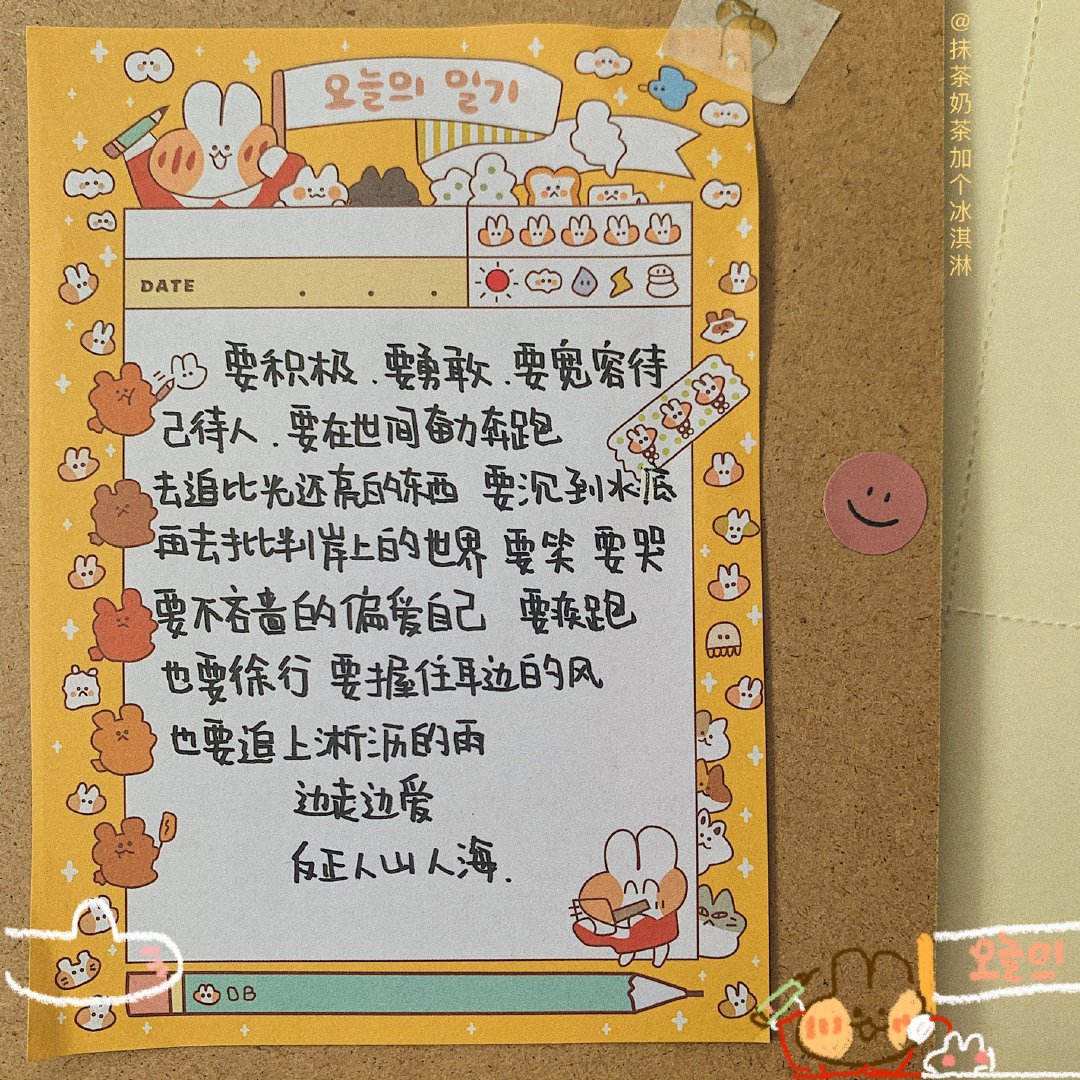 오늘의 일기
DATE
要积极.要勇敢.要宽容待
己待人.要在世间奋力奔跑
去追比光还亮的东西 要沉到水底
再去批判岸上的世界 要笑 要哭
要不吝啬的偏爱自己 要疾跑
也要徐行 要握住耳边的风
也要追上淅沥的雨
边走边爱
反正人山人海.
DB
@抹茶奶茶加个冰淇淋
오늘의